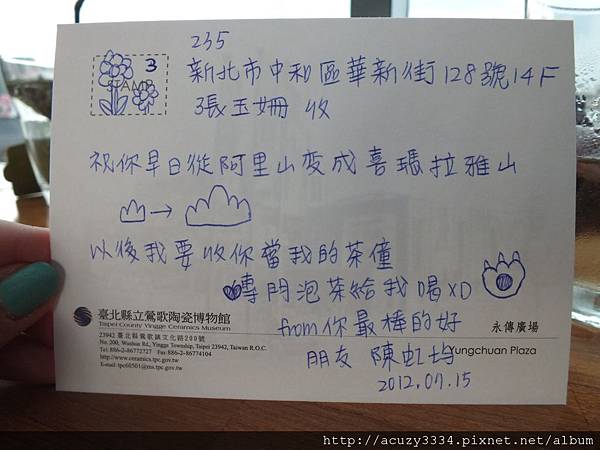 235
新北市中和區華新街128號14F
張玉姍 收
3
STAMP
祝你早日從阿里山變成喜瑪拉雅山
以後我要收你當我的茶僮
專門泡茶給我喝XD
from你最棒的好
朋友 陳虹均
2012.07.15
臺北縣立鶯歌陶瓷博物館
Taipei County Yingge Ceramics Museum
23942 臺北縣鶯歌鎮文化路200號
No. 200, Wunhua Rd., Yingge Township, Taipei 23942, Taiwan R.O.C.
Tel: 886-2-86772727 Fax: 886-2-86774104
http://www.ceramics.tpc.gov.tw
E-mail: tpc60501@ms.tpc.gov.tw
永傳廣場
Yungchuan Plaza
http://acuzy3334.pixnet.net/album